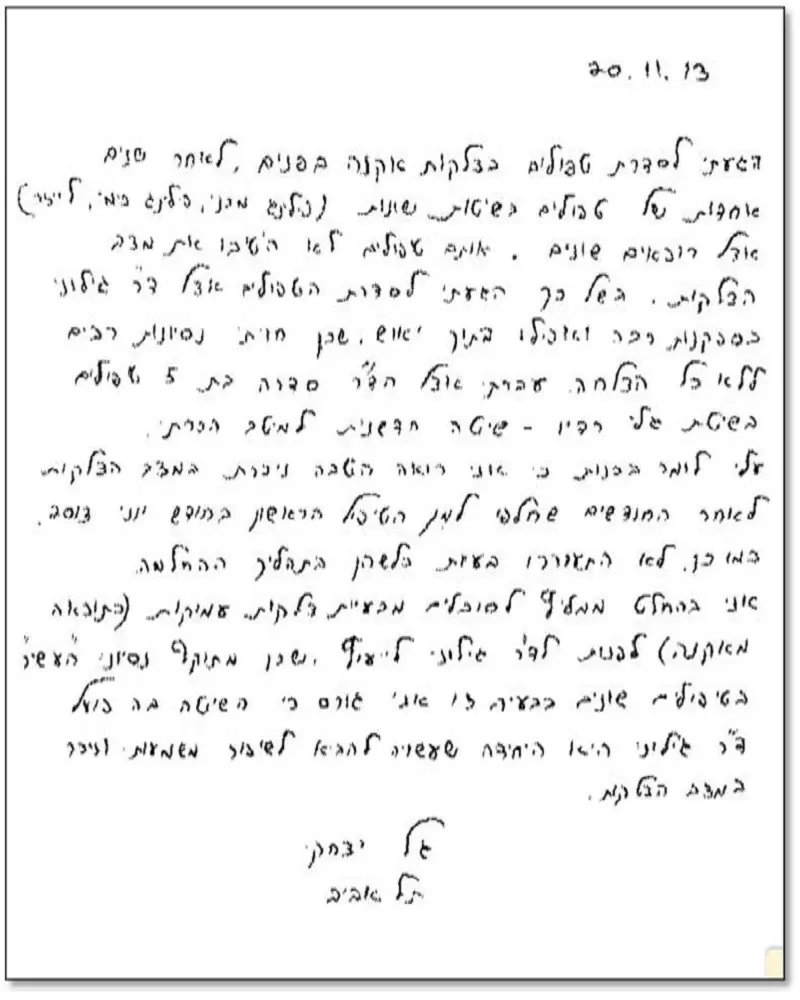 20.11.13
הגעתי לסדרת טפולים בצלקות אקנה בפנים, לאחר שנים
אחדות של טפולים בשיטות שונות (פילינג מכני, פילינג כימי, לייזר)
אצל רופאים שונים. אותם טפולים לא השיבו את מצב
הצלקות. בשל כך הגעתי לסדרת הטפולים אצל ד"ר גילוני
בסקפנות רבה ואפילו בתוך יאוש, שכן חויתי נסיונות רבים
ללא כל הצלחה. עברתי אצל הד"ר סדרה בת 5 טפולים
בשיטת גלי רדיו - שיטה חדשנית למיטב הכרתי.
עלי לומר בכנות כי אני רואה הטבה ניכרת במצב הצלקות
לאחר החודשים שחלפו למן הטיפול הראשון בחודש יוני
כמו כן, לא התעוררו בעיות כלשהן בתהליך ההחלמה.
אני בהחלט ממליץ לסובלים מבעיית צלקות עמוקות (כתוצאה
מאקנה) לפנות לד"ר גילוני לייעוץ, שכן מתוקף נסיוני "העשיר"
בטיפולים שונים בבעיה זו אני גורס כי השיטה בה פועל
ד"ר גילוני היא היחידה שעשויה להביא לשיפור משמעותי וניכר
במצב הצלקות.
גל יצחקי
תל אביב